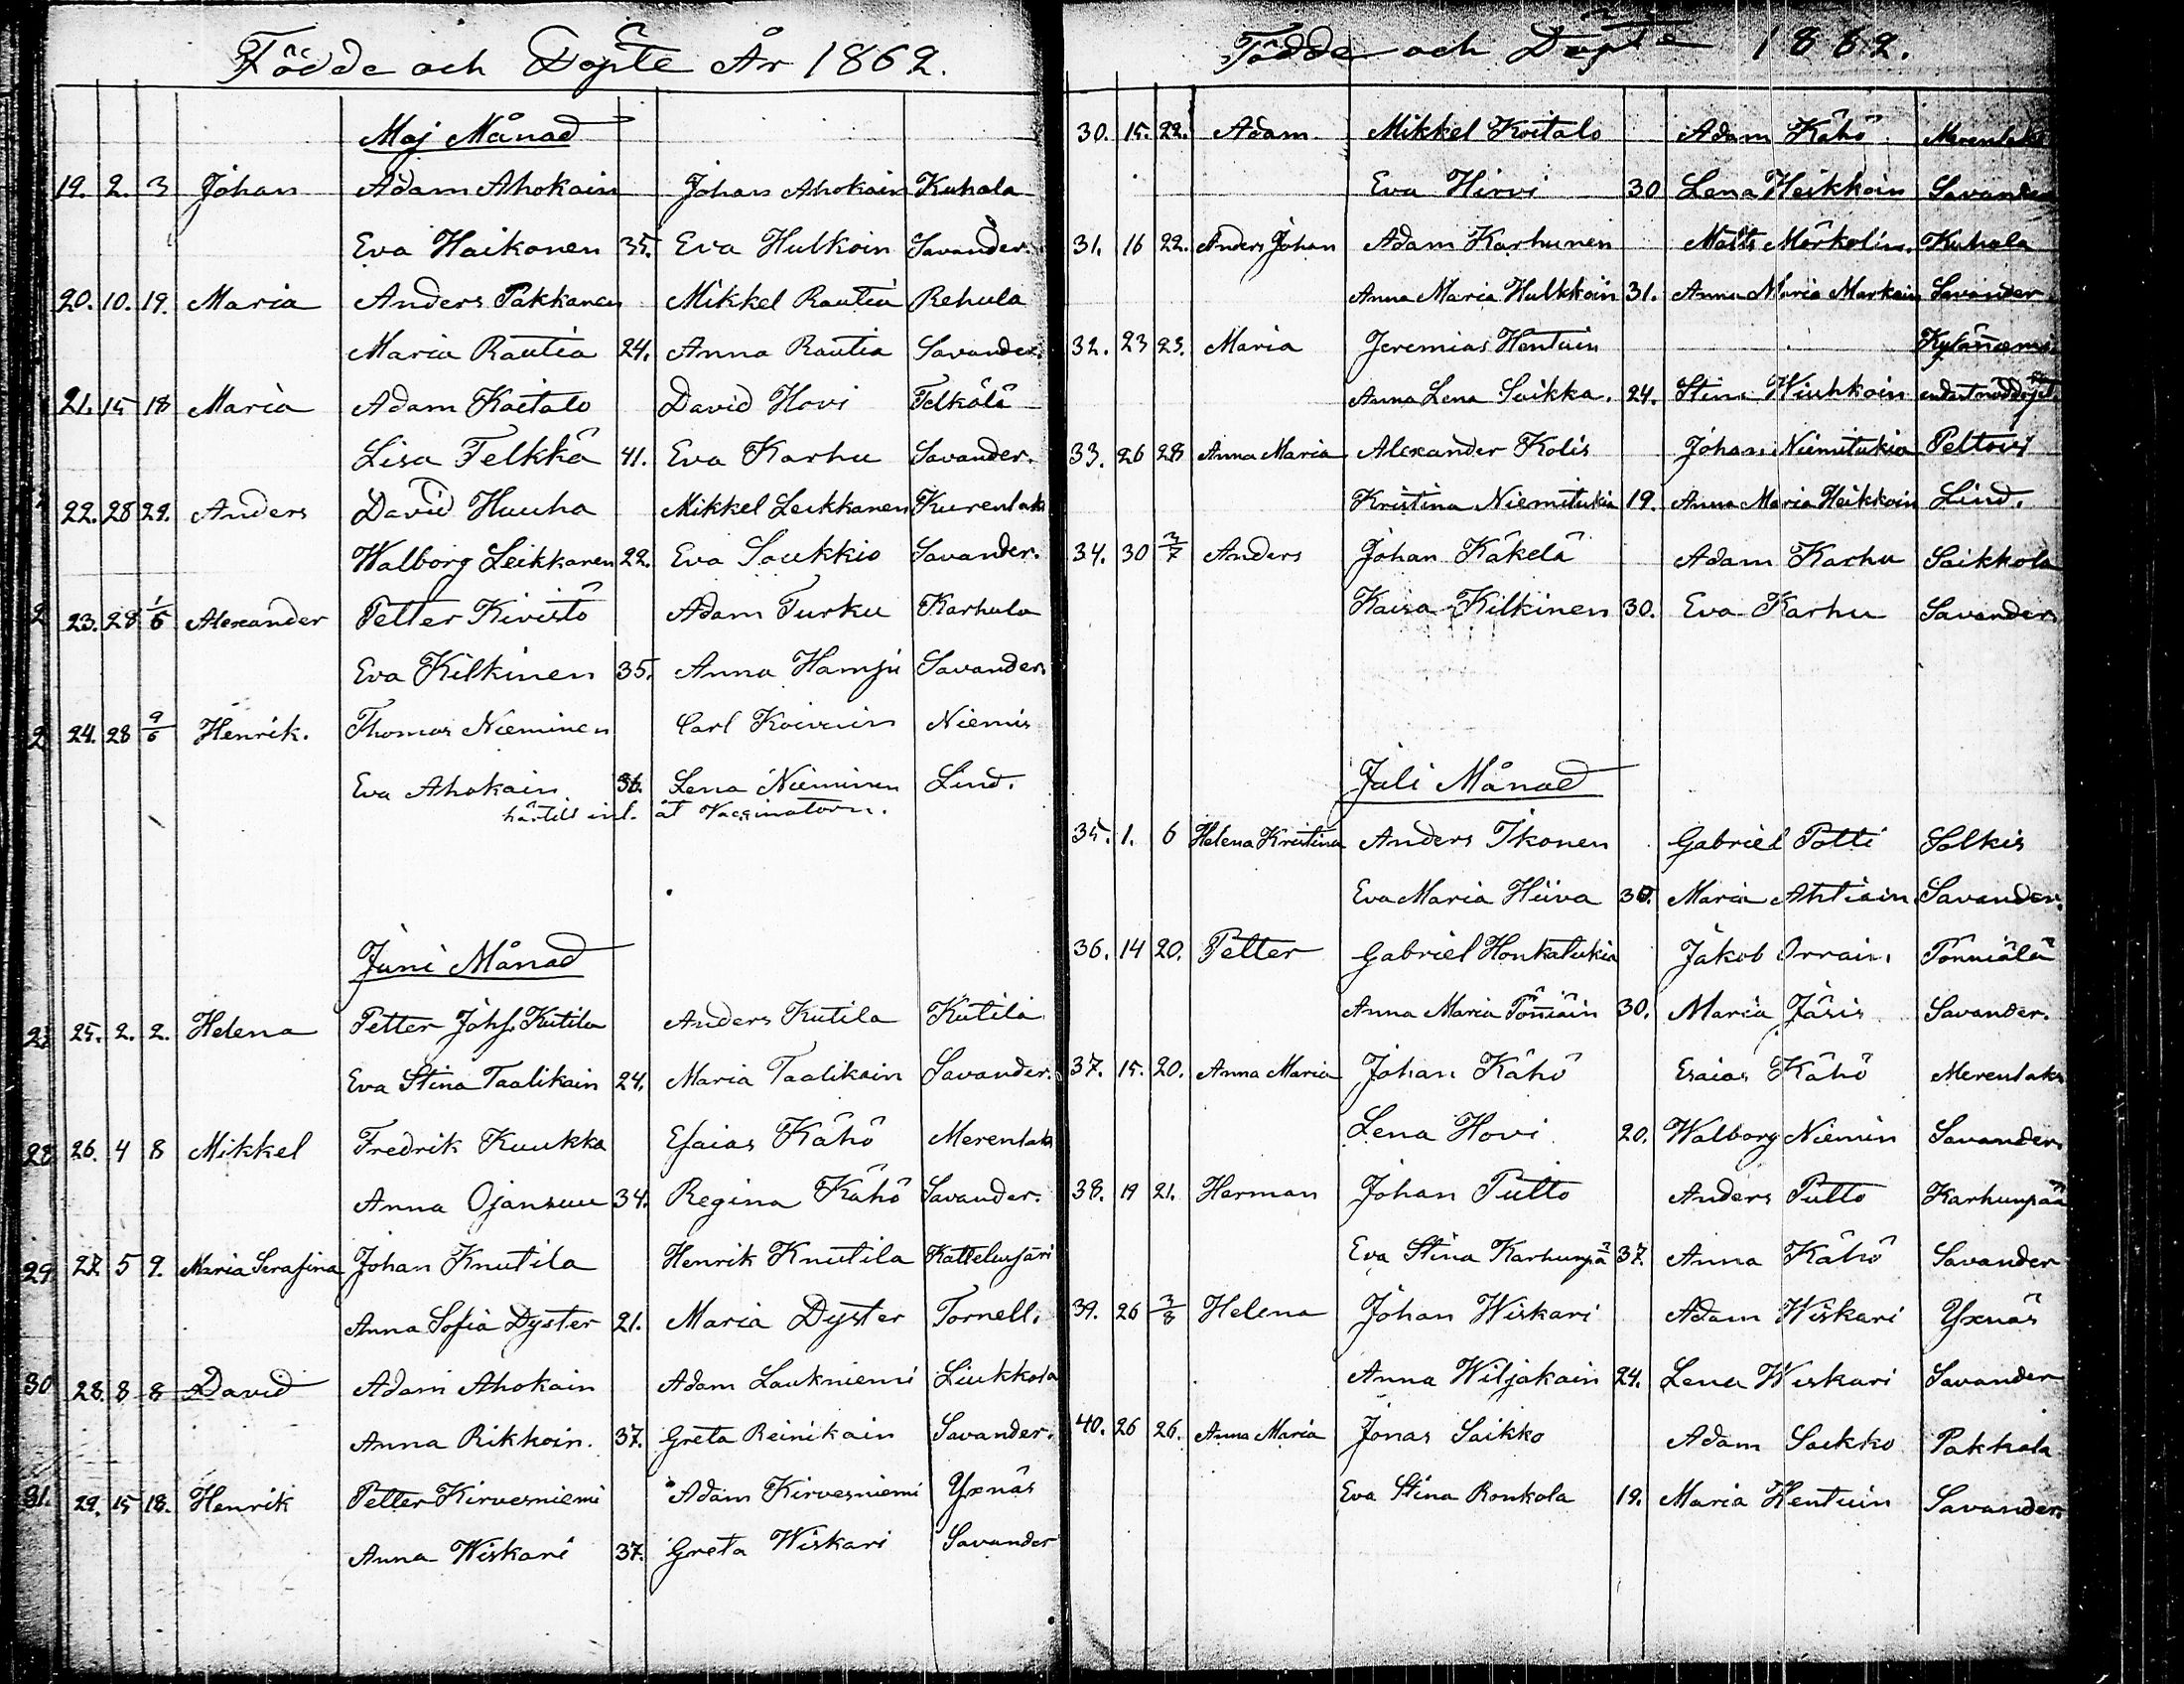 Födde och Döpte År 1862.
Maj Månad
19. 2. 3 Johan Adam Ahokain Johan Ahokain Kuhala
Eva Haikonen 35. Eva Hulkoin Savander.
20. 10. 19. Maria Anders Pakkanen Mikkel Rautia Rehula
Maria Rautia 24. Anna Rautia Savander.
21. 15 18 Maria Adam Koitalo David Hovi Telkälä
Lisa Telkkä 41. Eva Karhu Savander.
22. 28 29. Anders David Huuha Mikkel Leikkanen Kurenlaks
Walborg Leikkanen 22. Eva Saukkio Savander.
23. 28 1/6 Alexander Petter Kivistö Adam Turku Karhula
Eva Kilkinen 35. Anna Hamju Savander.
24. 28 9/6 Henrik. Thomas Nieminen Carl Koivuin Niemis
Eva Ahokain 36. Lena Nieminen Lind.
härtill inl. åt Vaccinatorn.
Juni Månad
25. 2. 2. Helena Petter Johs. Kutila Anders Kutila Kutila
Eva Stina Taalikain 24. Maria Taalikain Savander.
28 26. 4 8 Mikkel Fredrik Kuukka Esaias Kähö Merenlaks
Anna Ojansuu 34. Regina Kähö Savander.
29 27. 5 9. Maria Serafina Johan Knutila Henrik Knutila Kattelusjäri
Anna Sofia Dyster 21. Maria Dyster Tornell.
30 28. 8 8 David Adam Ahokain Adam Laukniemi Liukkola
Anna Rikkoin. 37. Greta Reinikain Savander.
31. 29. 15 18. Henrik Petter Kirvesniemi Adam Kirvesniemi Yxnäs
Anna Wiskari 37. Greta Wiskari Savander
Födde och Döpte 1862.
30. 15. 22. Adam Mikkel Koitalo Adam Kähö Merenlaks
Eva Hirvi 30 Lena Heikkoin Savander
31. 16 22. Anders Johan Adam Karhunen Matts Mörkolin. Kuhala
Anna Maria Hulkkoin 31. Anna Maria Markain Savander
32. 23 23. Maria Jeremias Hentuin Kylänemi
Anna Lena Saikka. 24. Stina Wiuhkoin
33. 26 28 Anna Maria Alexander Kolis Johan Niemitukia Peltois
Kristina Niemitukia 19. Anna Maria Heikkoin Lind.
34. 30 3/7 Anders Johan Käkelä Adam Karhu Saikkola
Kaisa Kilkinen 30. Eva Karhu Savander
Juli Månad
35. 1. 6 Helena Kristina Anders Ikonen Gabriel Potti Solkis
Eva Maria Hiiva 30. Maria Ahtiain Savander.
36. 14 20. Petter Gabriel Honkatukia Jakob Orrain. Pönniälä
Anna Maria Pöniäin 30. Maria Jäsis Savander.
37. 15. 20. Anna Maria Johan Kähö Esaias Kähö Merenlaks
Lena Hovi 20. Walborg Niemin Savander.
38. 19 21. Herman Johan Putto Anders Putto Karhunpää
Eva Stina Karhunpä 37. Anna Kähö Savander
39. 26 3/8 Helena Johan Wiskari Adam Wiskari Yxnäs
Anna Wiljakain 24. Lena Wiskari Savander
40. 26 26. Anna Maria Jonas Saikko Adam Saikko Pakkala
Eva Stina Ronkola 19. Maria Hentuin Savander.